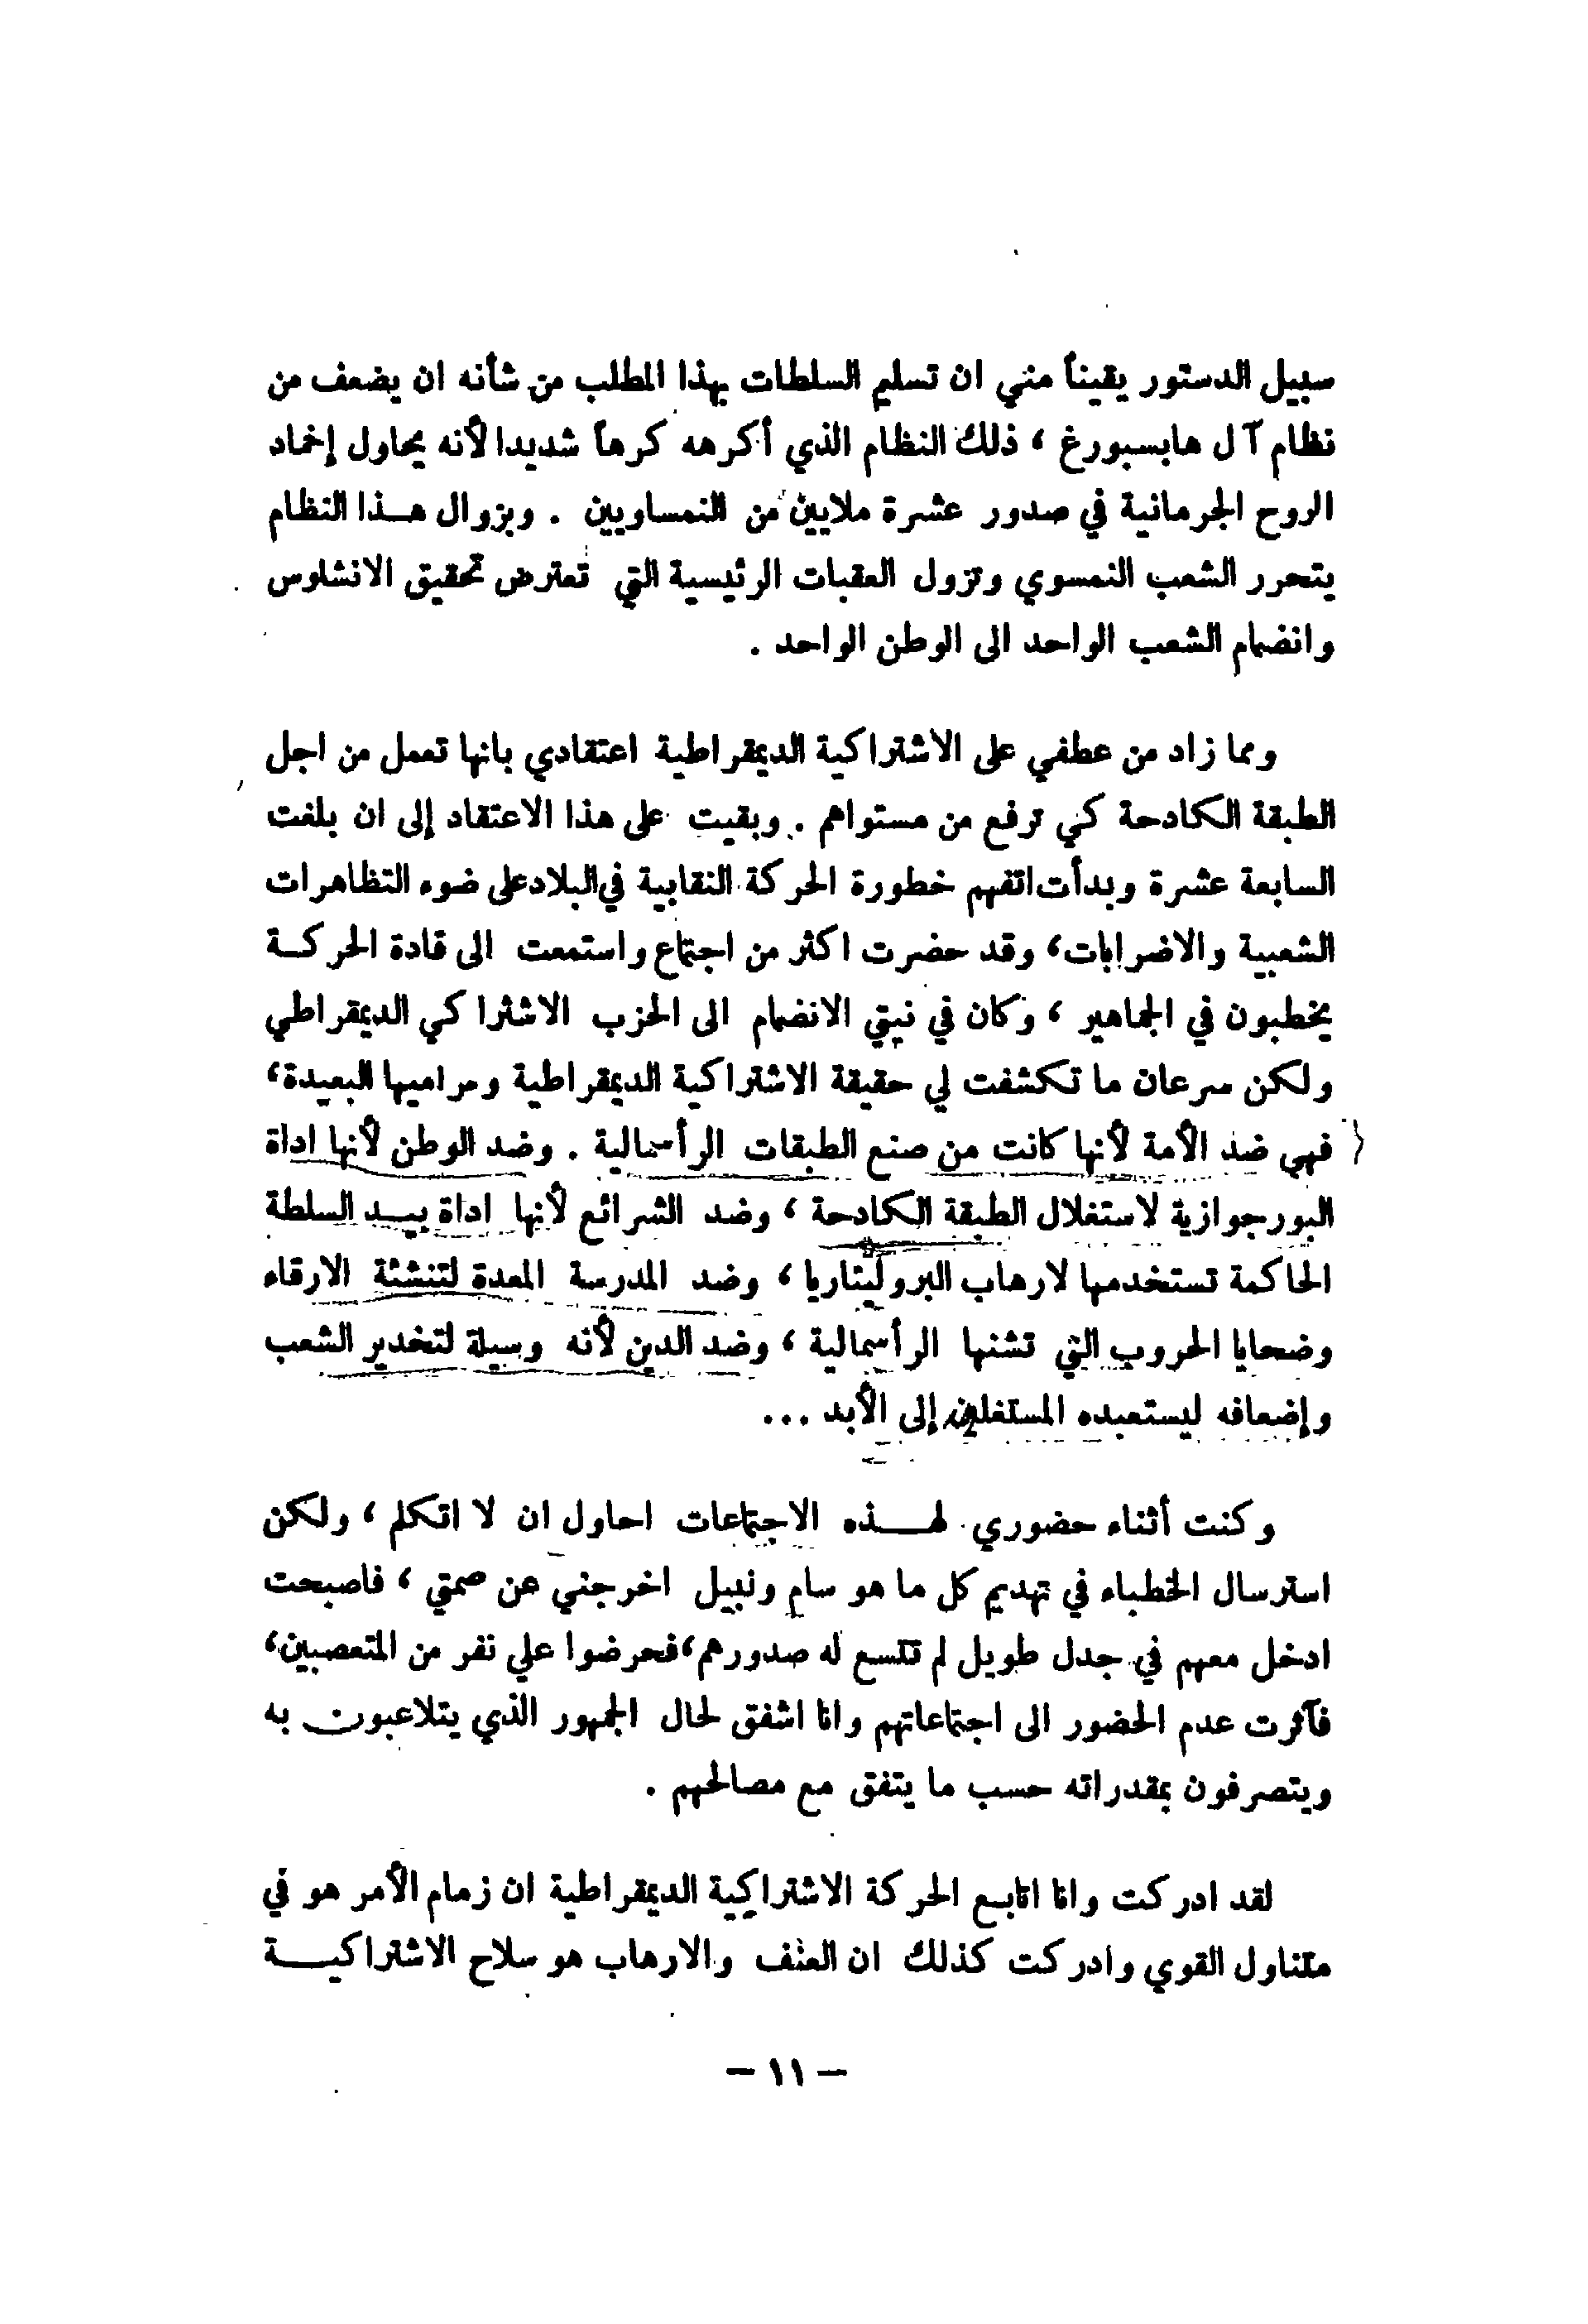 سبيل الدستور يقيناً مني ان تسليم السلطات بهذا المطلب من شأنه ان يضعف من
نظام آل هابسبورغ ، ذلك النظام الذي أكرهه كرهاً شديدا لأنه يحاول إخماد
الروح الجرمانية في صدور عشرة ملايين من النمساويين . وبزوال هـذا النظام
يتحرر الشعب النمسوي وتزول العقبات الرئيسية التي تعترض تحقيق الانشلوس
وانضمام الشعب الواحد الى الوطن الواحد .
ومما زاد من عطفي على الاشتراكية الديمقراطية اعتقادي بانها تعمل من اجل
الطبقة الكادحة كي ترفع من مستواهم . وبقيت على هذا الاعتقاد إلى ان بلغت
السابعة عشرة وبدأت اتفهم خطورة الحركة النقابية في البلاد على ضوء التظاهرات
الشعبية والاضرابات، وقد حضرت اكثر من اجتماع واستمعت الى قادة الحركـة
يخطبون في الجماهير ، وكان في نيتي الانضمام الى الحزب الاشتراكي الديمقراطي
ولكن سرعان ما تكشفت لي حقيقة الاشتراكية الديمقراطية ومراميها البعيدة،
فهي ضد الأمة لأنها كانت من صنع الطبقات الرأسمالية . وضد الوطن لأنها اداة
البورجوازية لاستغلال الطبقة الكادحة ، وضد الشرائع لأنها اداة بيـد السلطة
الحاكمة تستخدمها لارهاب البروليتاريا ، وضد المدرسة المعدة لتنشئة الارقاء
وضحايا الحروب التي تشنها الرأسمالية ، وضد الدين لأنه وسيلة لتخدير الشعب
وإضعافه ليستعبده المستغلون إلى الأبد ...
وكنت أثناء حضوري لهـــذه الاجتماعات احاول ان لا اتكلم ، ولكن
استرسال الخطباء في تهديم كل ما هو سام ونبيل اخرجني عن صمتي ، فاصبحت
ادخل معهم في جدل طويل لم تتسع له صدورهم، فحرضوا علي نفر من المتعصبين،
فآثرت عدم الحضور الى اجتماعاتهم وانا اشفق لحال الجمهور الذي يتلاعبون به
ويتصرفون بمقدراته حسب ما يتفق مع مصالحهم .
لقد ادركت وانا اتابع الحركة الاشتراكية الديمقراطية ان زمام الأمر هو في
متناول القوي وادركت كذلك ان العنف والارهاب هو سلاح الاشتراكيـــة
– ١١ –